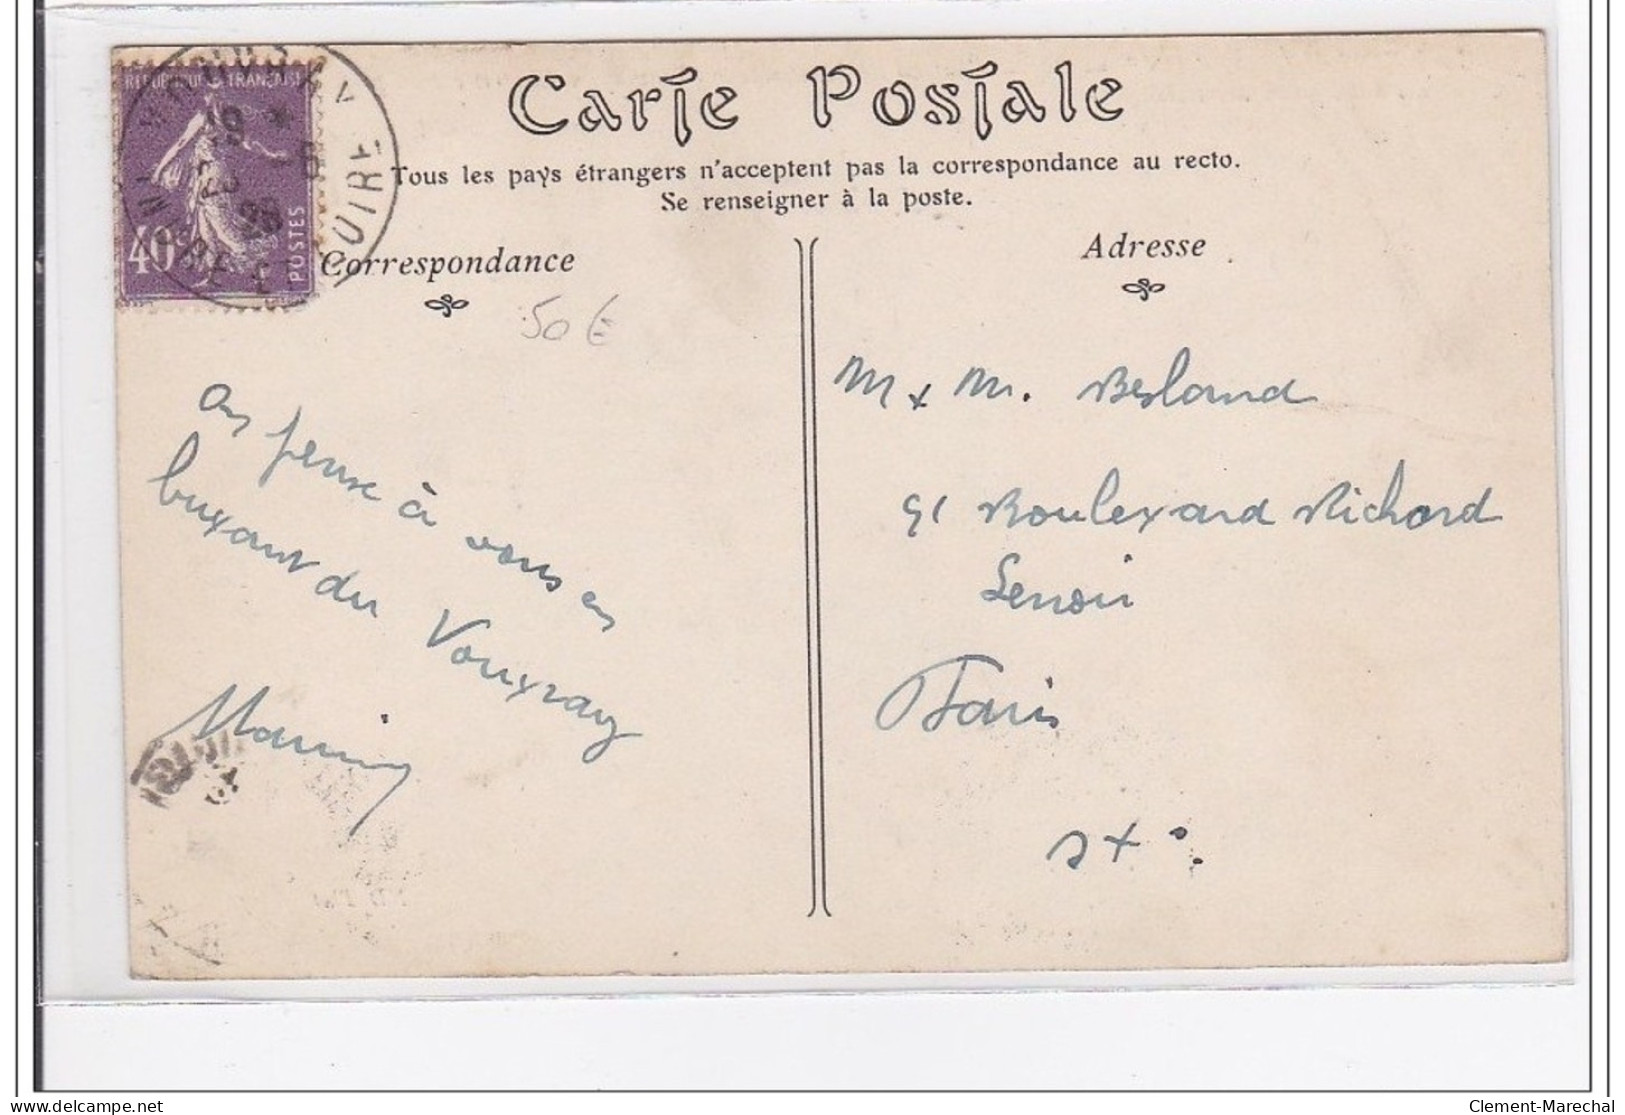 Carte Postale
Tous les pays étrangers n'acceptent pas la correspondance au recto.
Se renseigner à la poste.
REPUBLIQUE FRANÇAISE
40c
POSTES
VOUVRAY
INDRE ET LOIRE
Correspondance
Adresse
50 €
on pense à vous en
buvant du Vouvray
M & M. Berland
91 Boulevard Richard
Lenoir
Paris
Clement-Marechal
delcampe.net